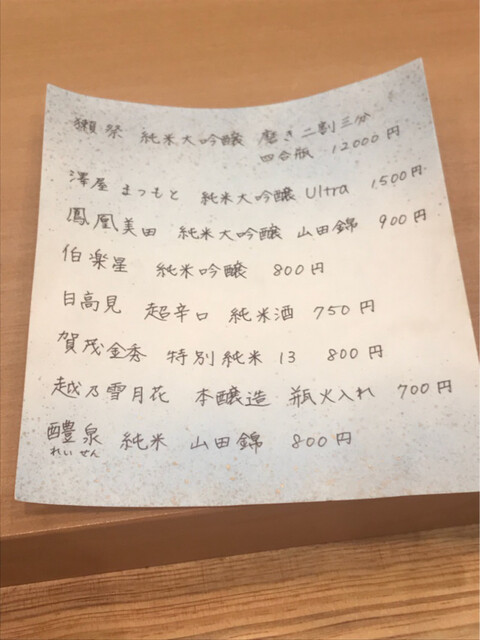 獺祭 純米大吟醸 磨き二割三分
四合瓶 12000円
澤屋 まつもと 純米大吟醸 Ultra 1500円
鳳凰美田 純米大吟醸 山田錦 900円
伯楽星 純米吟醸 800円
日高見 超辛口 純米酒 750円
賀茂金秀 特別純米 13 800円
越乃雪月花 本醸造 瓶火入れ 700円
醴泉 純米 山田錦 800円
れいせん